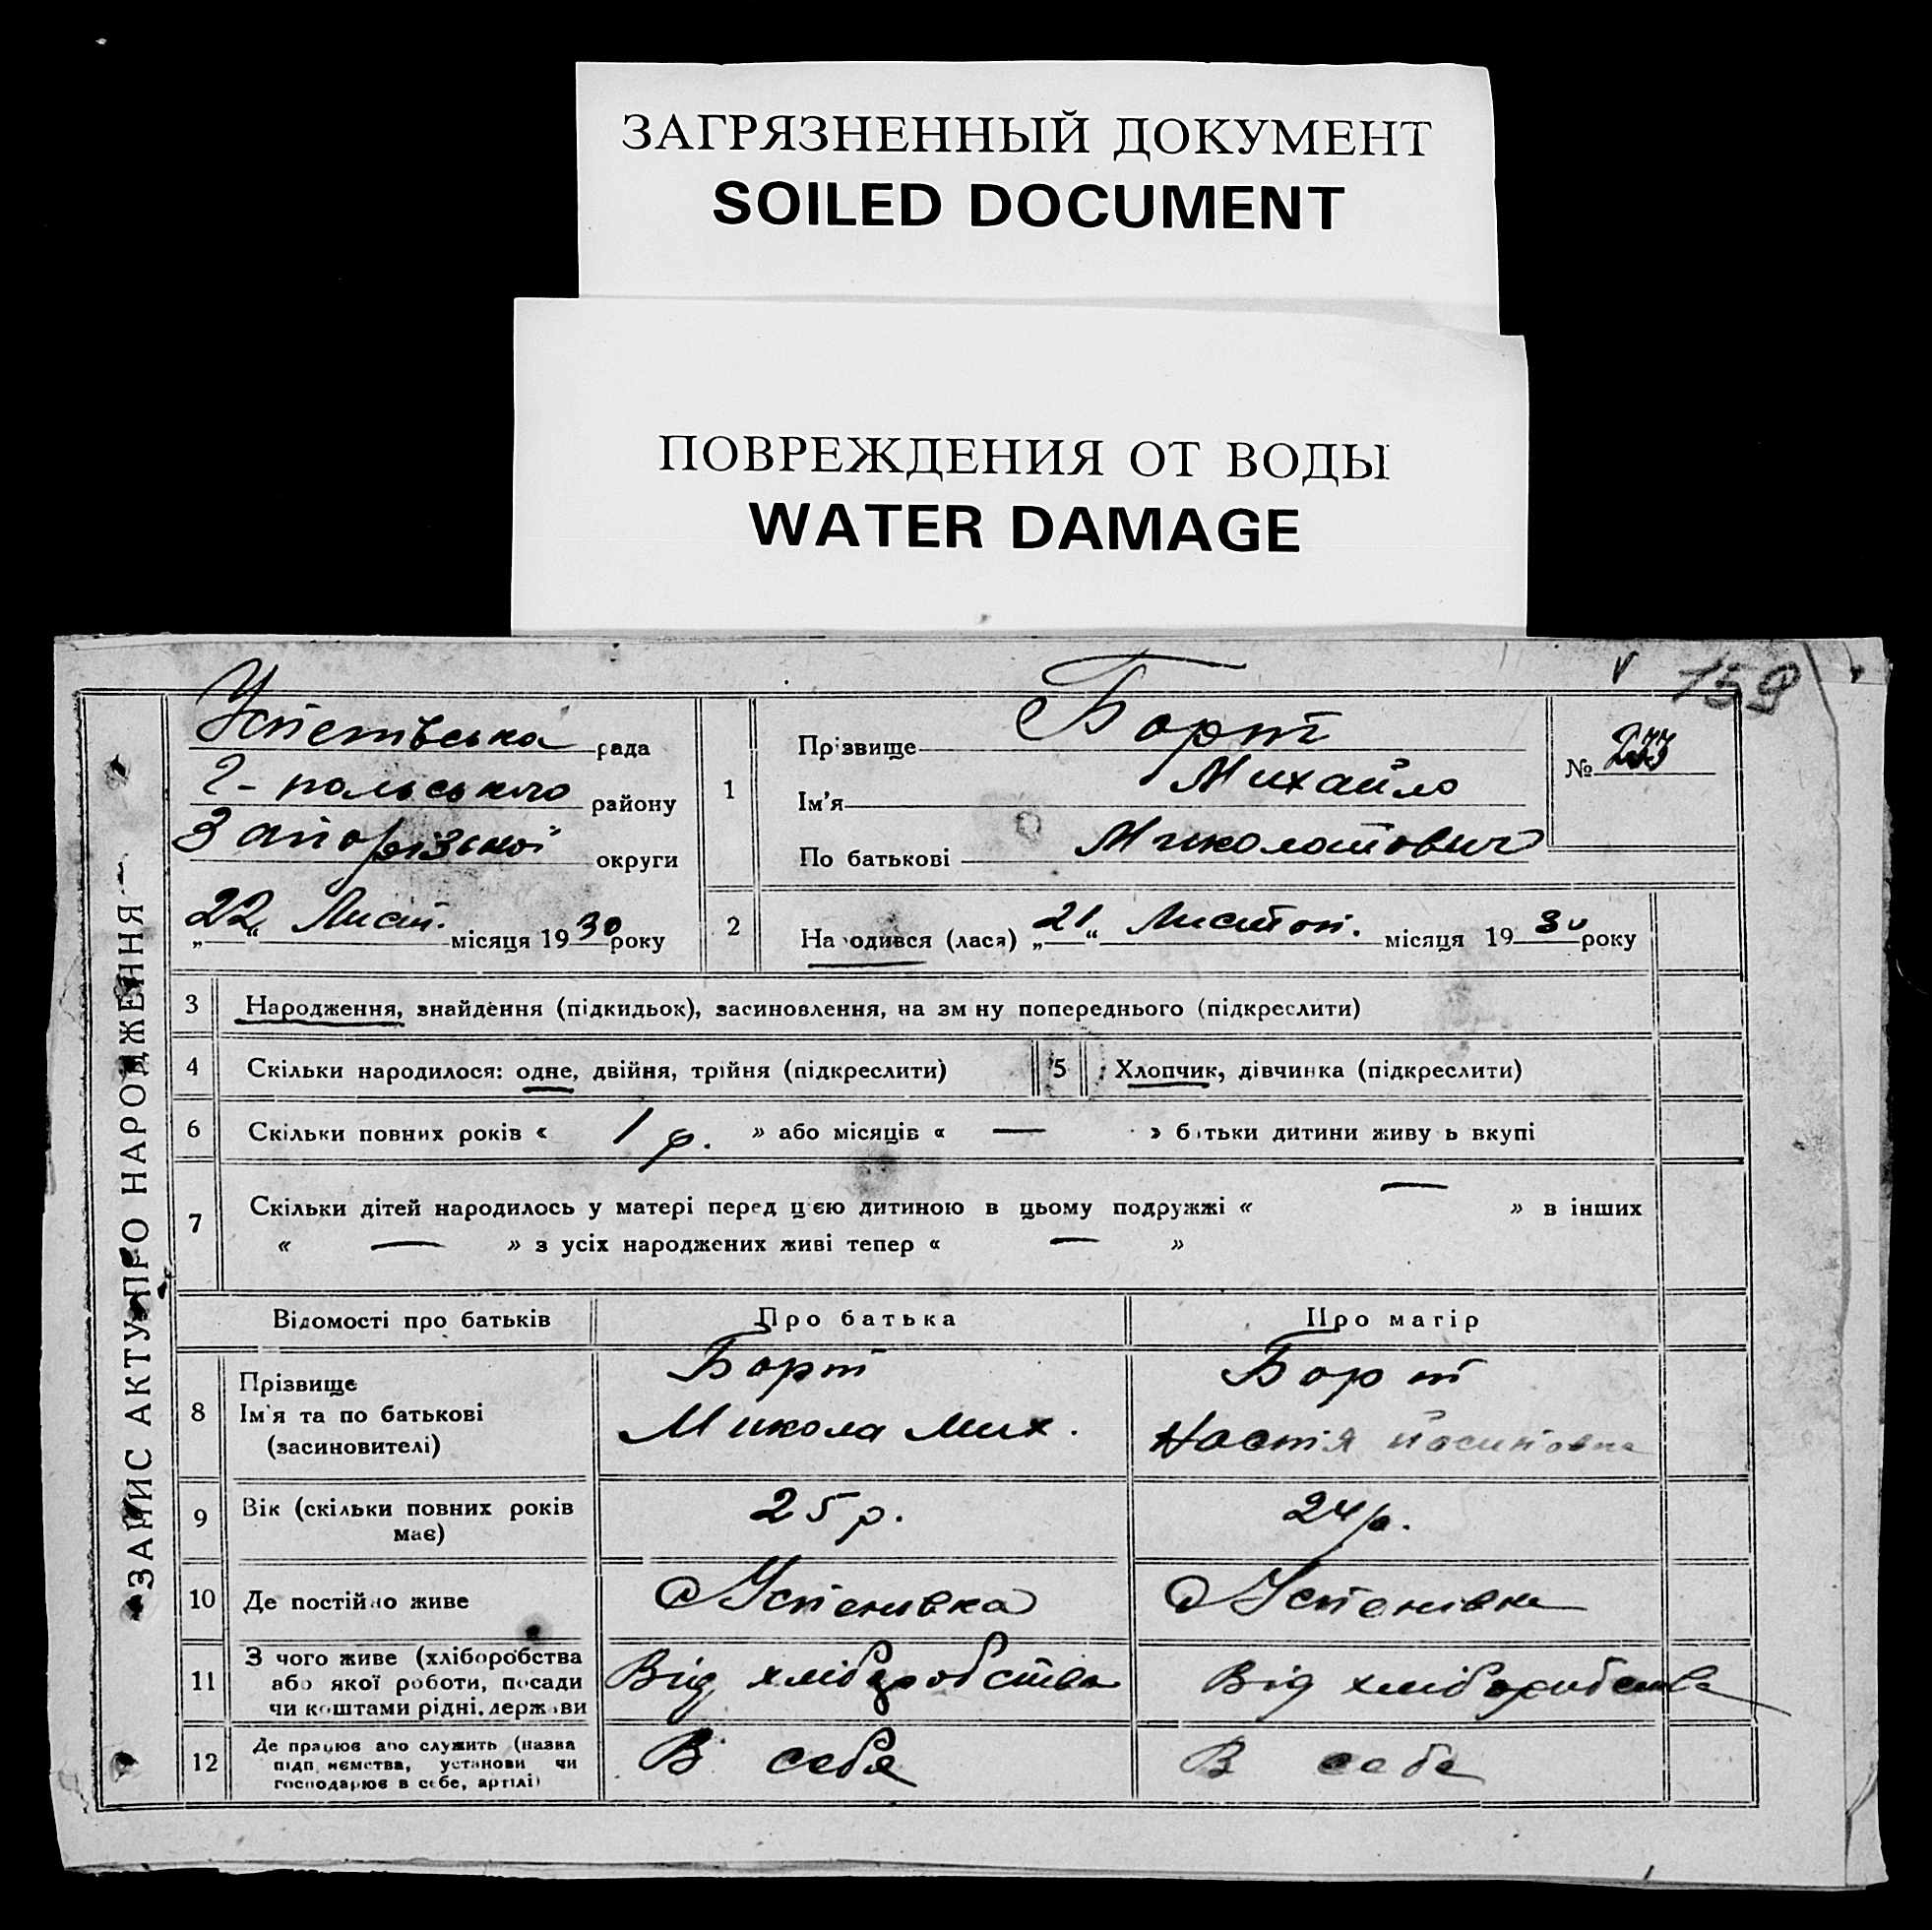 ЗАГРЯЗНЕННЫЙ ДОКУМЕНТ
SOILED DOCUMENT
ПОВРЕЖДЕНИЯ ОТ ВОДЫ
WATER DAMAGE
159
ЗАПИС АКТУ ПРО НАРОДЖЕННЯ
Успенівська рада
Г-польського району
Запорізької округи
„22“ Лист. місяця 1930 року
1
Прізвище Борт
Ім'я Михайло
По батькові Миколайович
№
2
Народився (лася) „21“ Листоп. місяця 1930 року
3 Народження, знайдення (підкидьок), засиновлення, на зміну попереднього (підкреслити)
4 Скільки народилося: одне, двійня, трійня (підкреслити)
5 Хлопчик, дівчинка (підкреслити)
6 Скільки повних років « 1 р. » або місяців « — » батьки дитини живуть вкупі
7 Скільки дітей народилось у матері перед цією дитиною в цьому подружжі « — » в інших
« — » з усіх народжених живі тепер « — »
Відомості про батьків Про батька Про матір
8 Прізвище
Ім'я та по батькові
(засиновителі)
Борт
Микола Мих.
Борт
Настія Йосиповна
9 Вік (скільки повних років
має)
25 р.
24 р.
10 Де постійно живе
с Успенивка
с Успенивка
11 З чого живе (хліборобства
або якої роботи, посади
чи коштами рідні, держави
Від хліборобства
Від хліборобства
12 Де працює або служить (назва
підприємства, установи чи
господарює в себе, артілі)
В себе
В себе